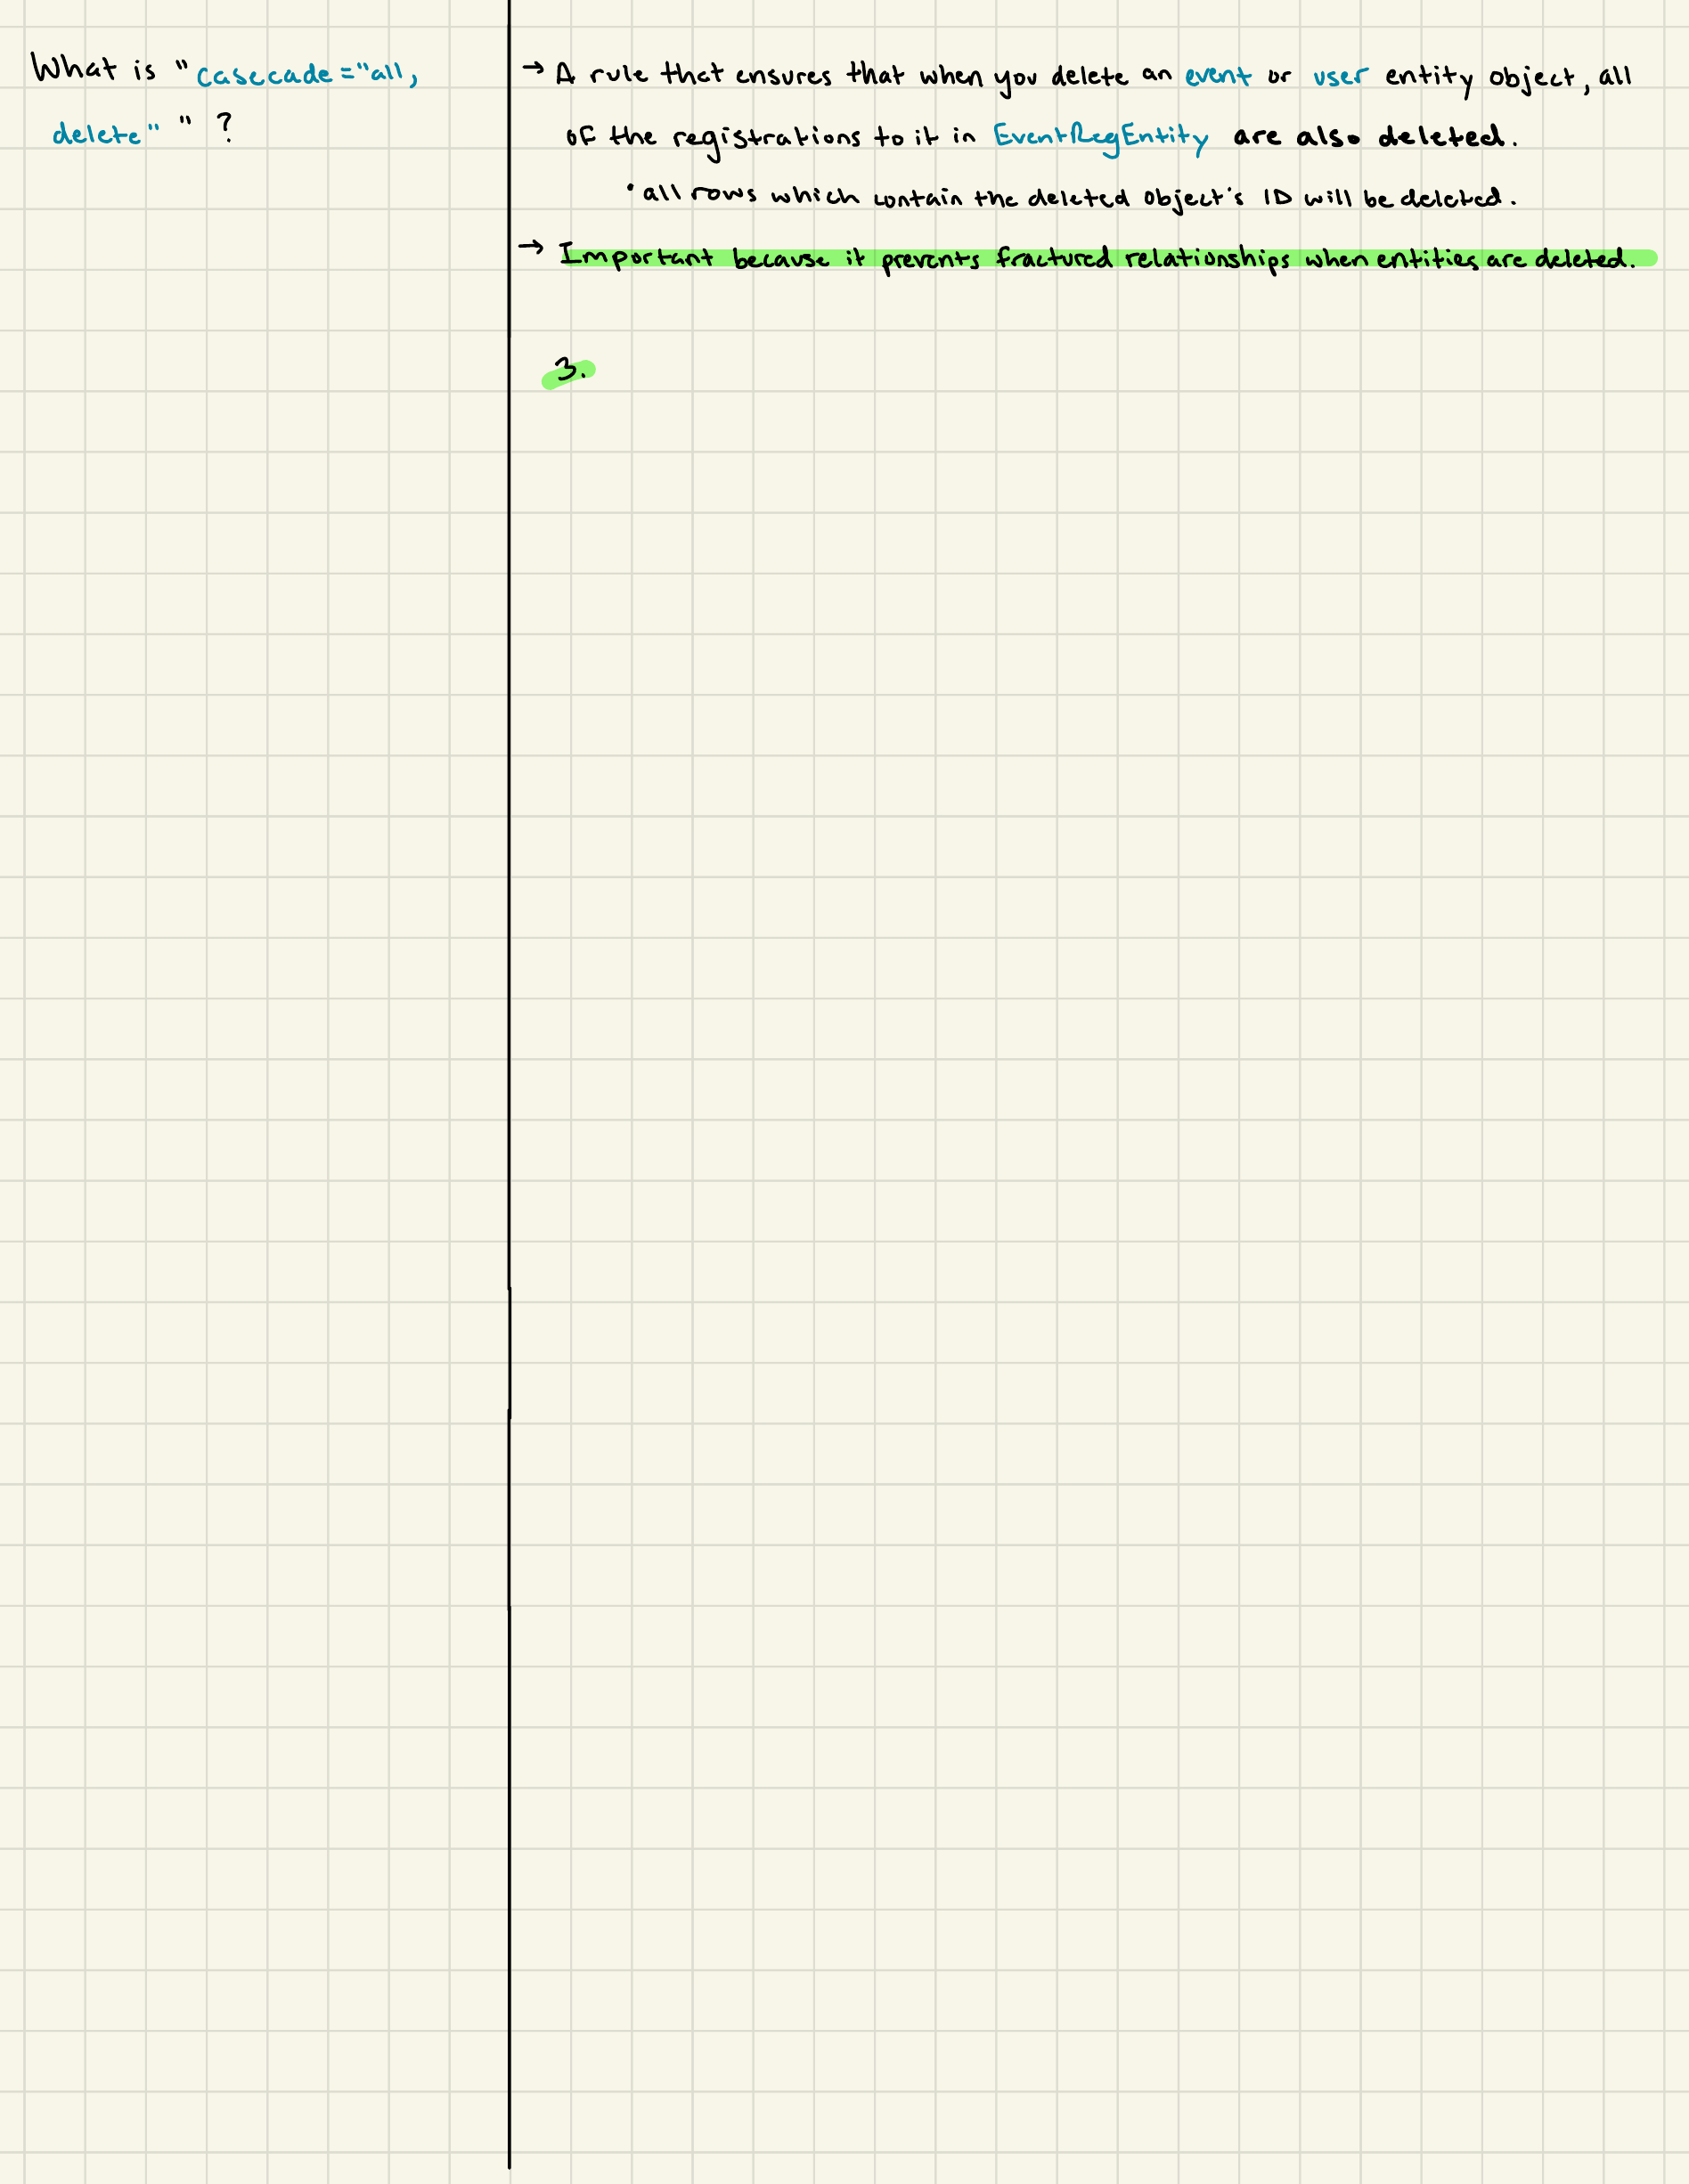 What is "casecade="all,
delete" " ?
→ A rule that ensures that when you delete an event or user entity object, all
of the registrations to it in EventRegEntity are also deleted.
• all rows which contain the deleted object's ID will be deleted.
→ Important because it prevents fractured relationships when entities are deleted.
3.